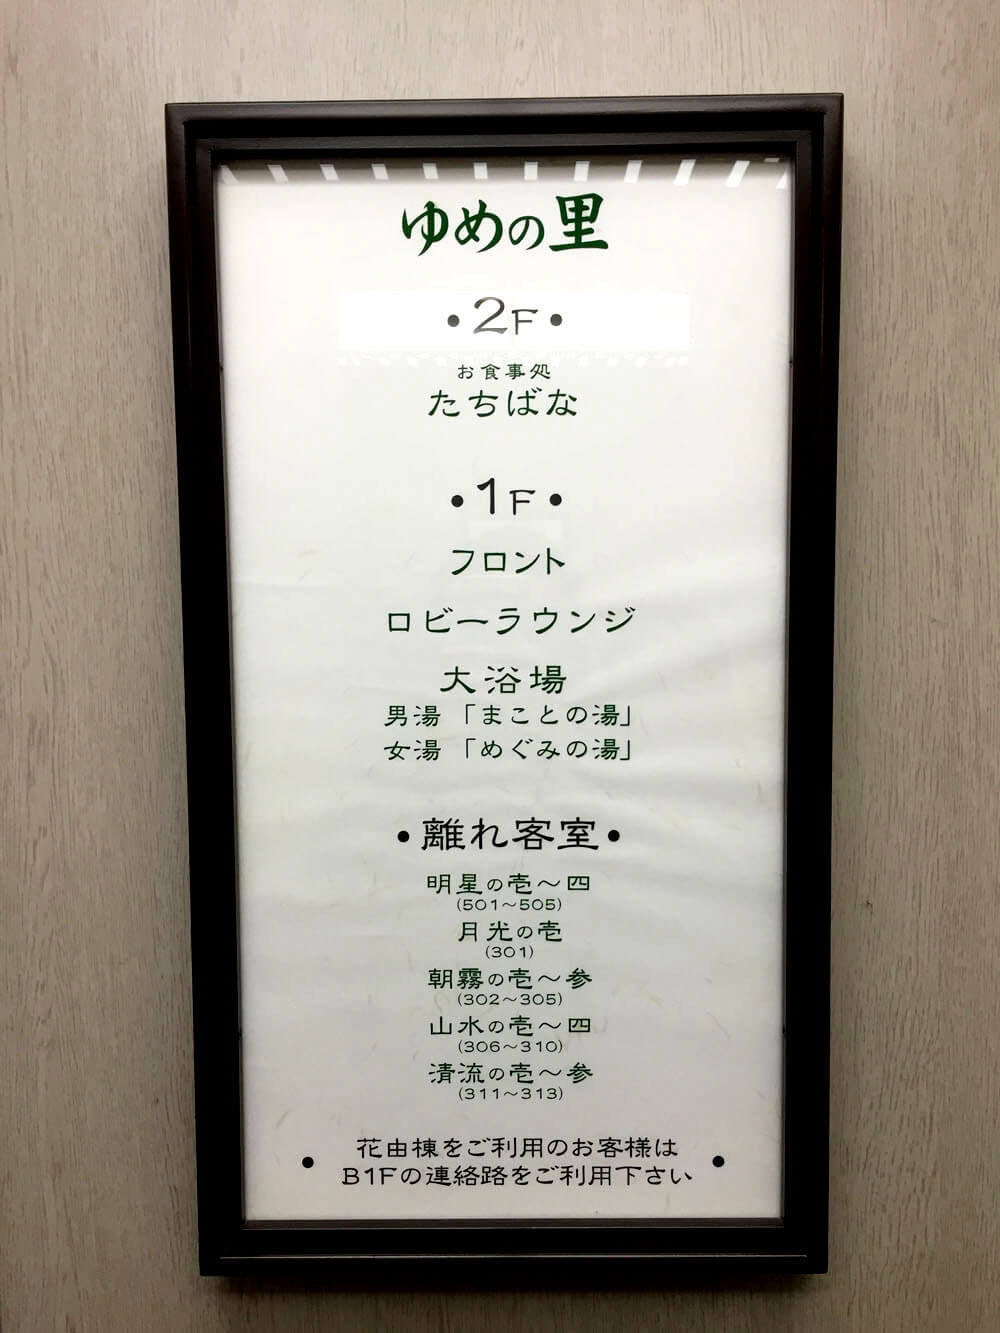 ゆめの里
・2F・
お食事処
たちばな
・1F・
フロント
ロビーラウンジ
大浴場
男湯「まことの湯」
女湯「めぐみの湯」
・離れ客室・
明星の壱〜四
(501〜505)
月光の壱
(301)
朝霧の壱〜参
(302〜305)
山水の壱〜四
(306〜310)
清流の壱〜参
(311〜313)
花由棟をご利用のお客様は
B1Fの連絡路をご利用下さい